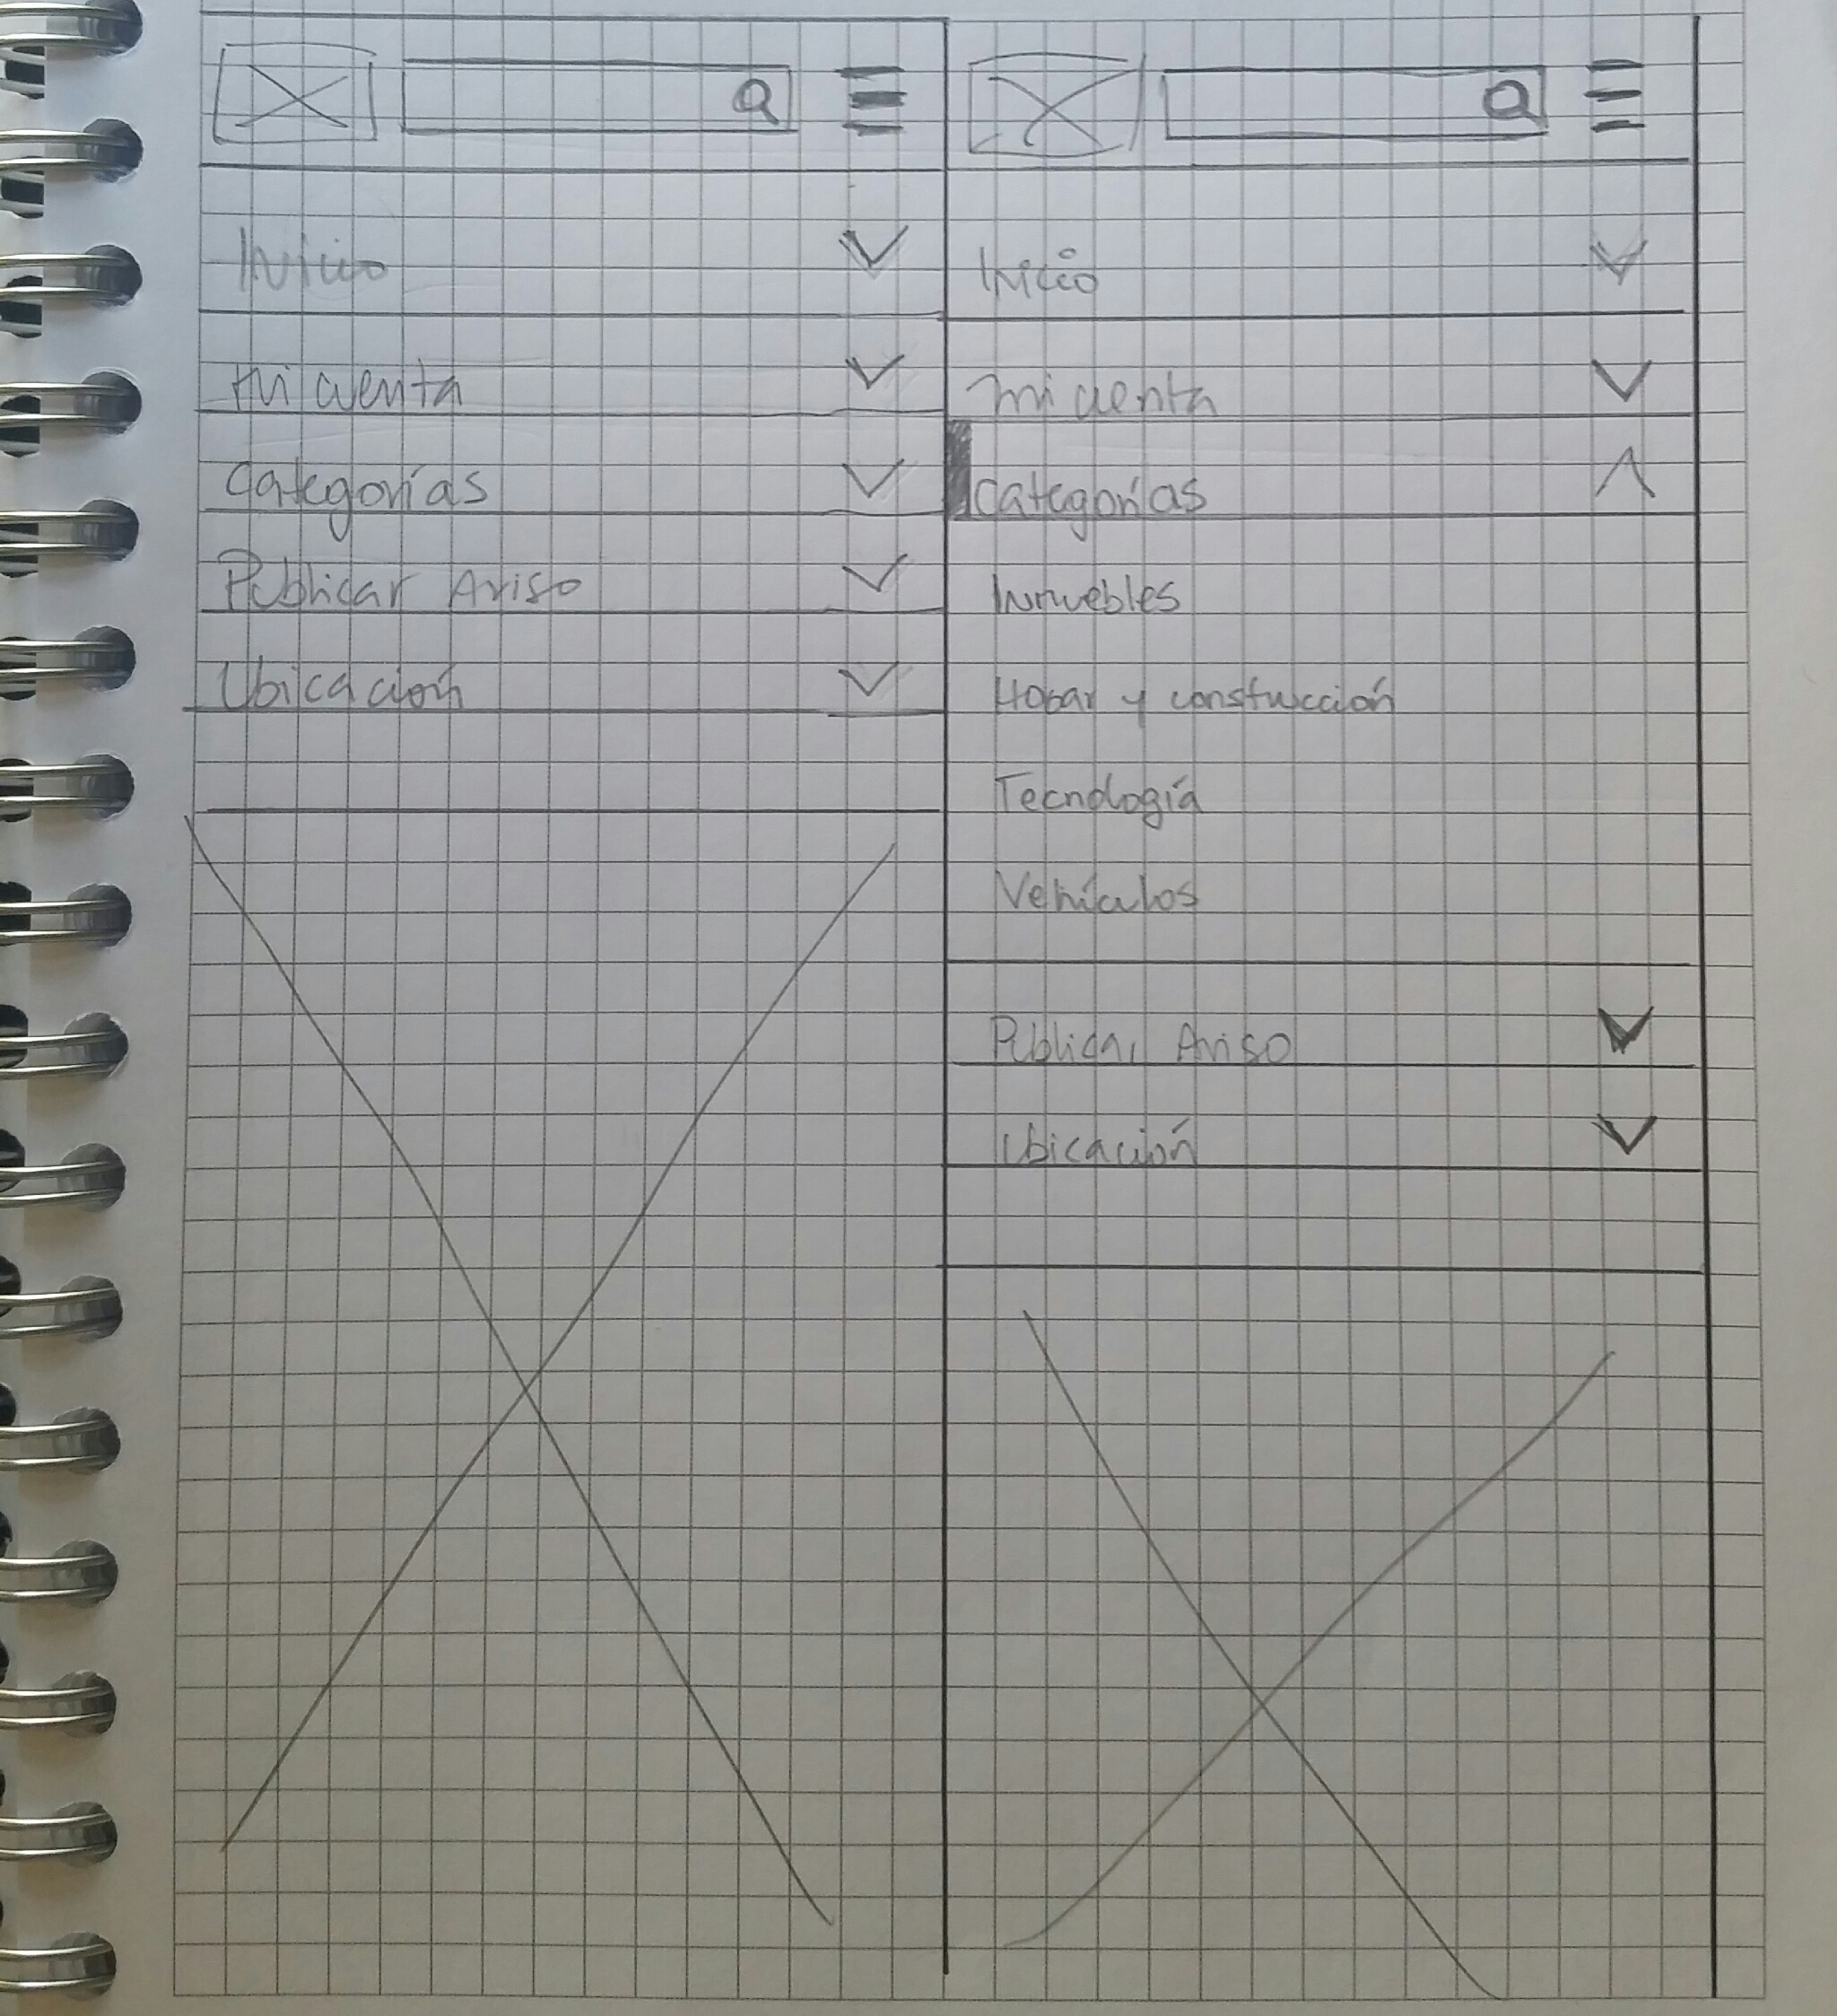 Inicio
mi cuenta
Categorías
Publicar Aviso
Ubicación
Inicio
mi cuenta
Categorías
Inmuebles
Hogar y construcción
Tecnología
Vehículos
Publicar Aviso
Ubicación